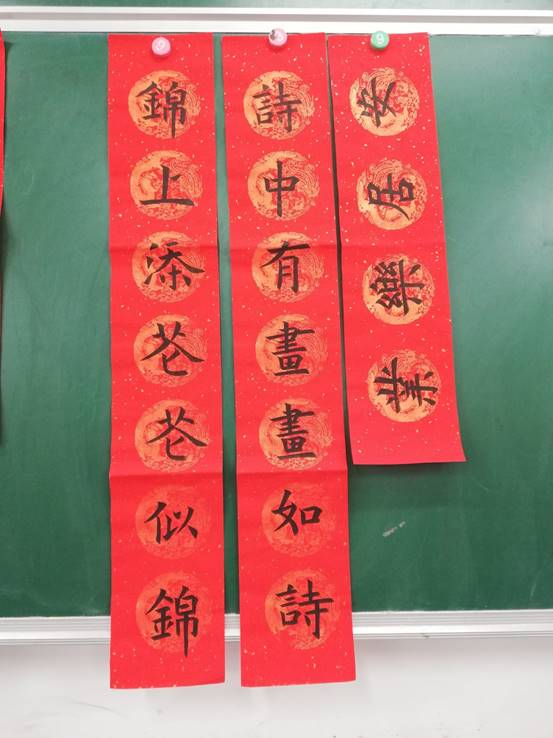 安居樂業
詩中有畫畫如詩
錦上添花花似錦